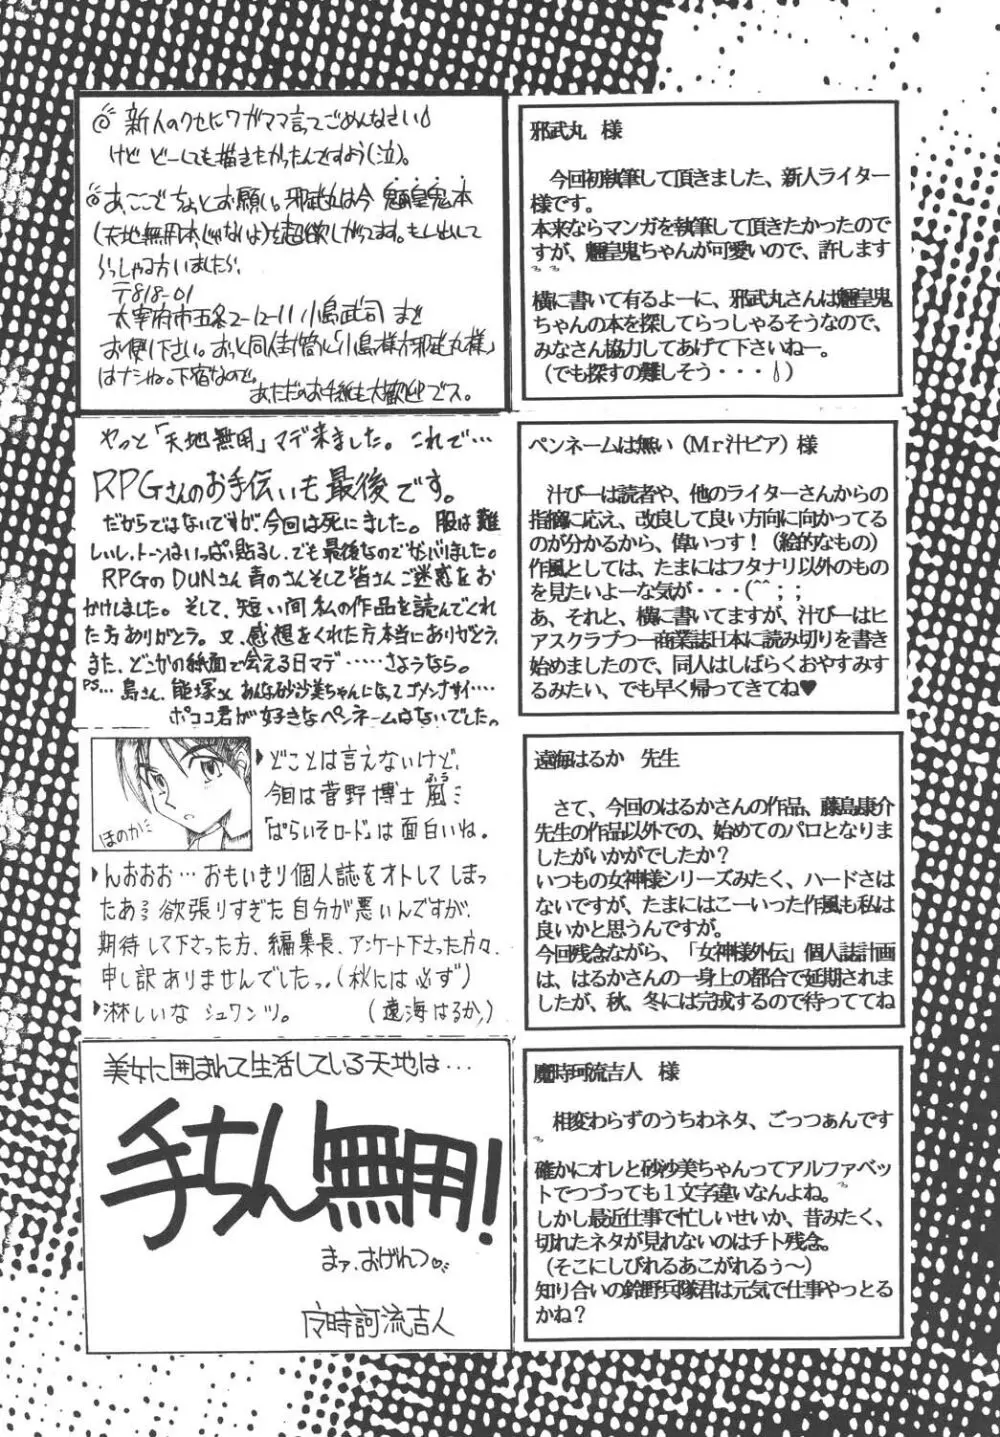 ◎新人のクセにワガママ言ってごめんなさい
けど どーしても描きたかったんですよう(泣)。
◎あ、ここでちょっとお願い。邪武丸は今 魎皇鬼本
(天地無用本じゃないよ)を超欲しがってます。もし出して
らっしゃる方いましたら、
〒818-01
太宰府市五条2-12-11 小島武司 まで
お便り下さい。おっと同人封筒に「小島様方邪武丸様」
はナシね。下宿なので。
あ、ただのお手紙も大歓迎でス。
邪武丸 様
今回初執筆して頂きました、新人ライター
様です。
本来ならマンガを執筆して頂きたかったので
すが、魎皇鬼ちゃんが可愛いので、許します
横に書いて有るよーに、邪武丸さんは魎皇鬼
ちゃんの本を探してらっしゃるそうなので、
みなさん協力してあげて下さいねー。
(でも探すの難しそう・・・)
やっと「天地無用」マデ来ました。これで…
RPGさんのお手伝いも最後です。
だからではないですが、今回は死にました。服は難
しいし、トーンはいっぱい貼るし、でも最後なのでガンバりました。
RPGのDUNさん 青のさん そして皆さん ご迷惑をお
かけしました。そして、短い間 私の作品を読んでくれ
た方ありがとう。又、感想をくれた方本当にありがとう。
また、どこかの紙面で会える日マデ……さようなら。
PS… 島さん、能塚さん あんな砂沙美ちゃんになってゴメンナサイ……
ポココ君が好きなペンネームはないでした。
ペンネームは無い(Mr汁ビア)様
汁びーは読者や、他のライターさんからの
指摘に応え、改良して良い方向に向かってる
のが分かるから、偉いっす!(絵的なもの)
作風としては、たまにはフタナリ以外のもの
を見たいよーな気が・・・(^^;;
あ、それと、横に書いてますが、汁びーはヒ
アスクラブつー商業誌日本に読み切りを書き
始めましたので、同人はしばらくおやすみす
るみたい、でも早く帰ってきてね♥
ほのか
どことは言えないけど、
今回は菅野博士風ふう
「ぱらいそロード」は面白いね。
んおおお… おもいきり個人誌をオトしてしまっ
たあ 欲張りすぎた自分が悪いんですが、
期待して下さった方、編集長、アンケート下さった方々、
申し訳ありませんでしたっ。(秋には必ず)
淋しいな シュワンツ。 (遠海はるか)
遠海はるか 先生
さて、今回のはるかさんの作品、藤島康介
先生の作品以外での、始めてのパロとなりま
したがいかがでしたか?
いつもの女神様シリーズみたく、ハードさは
ないですが、たまにはこーいった作風も私は
良いかと思うんですが。
今回残念ながら、「女神様外伝」個人誌計画
は、はるかさんの一身上の都合で延期されま
したが、秋、冬には完成するので待っててね
美女に囲まれて生活している天地は…
手ちん無用!
まァ、おげれつ
魔時訶流吉人
魔時珂流吉人 様
相変わらずのうちわネタ、ごっつぁんです
確かにオレと砂沙美ちゃんってアルファベッ
トでつづっても1文字違いなんよね。
しかし最近仕事で忙しいせいか、昔みたく、
切れたネタが見れないのはチト残念。
(そこにしびれるあこがれるぅ〜)
知り合いの鈴野兵隊君は元気で仕事やっとる
かね?